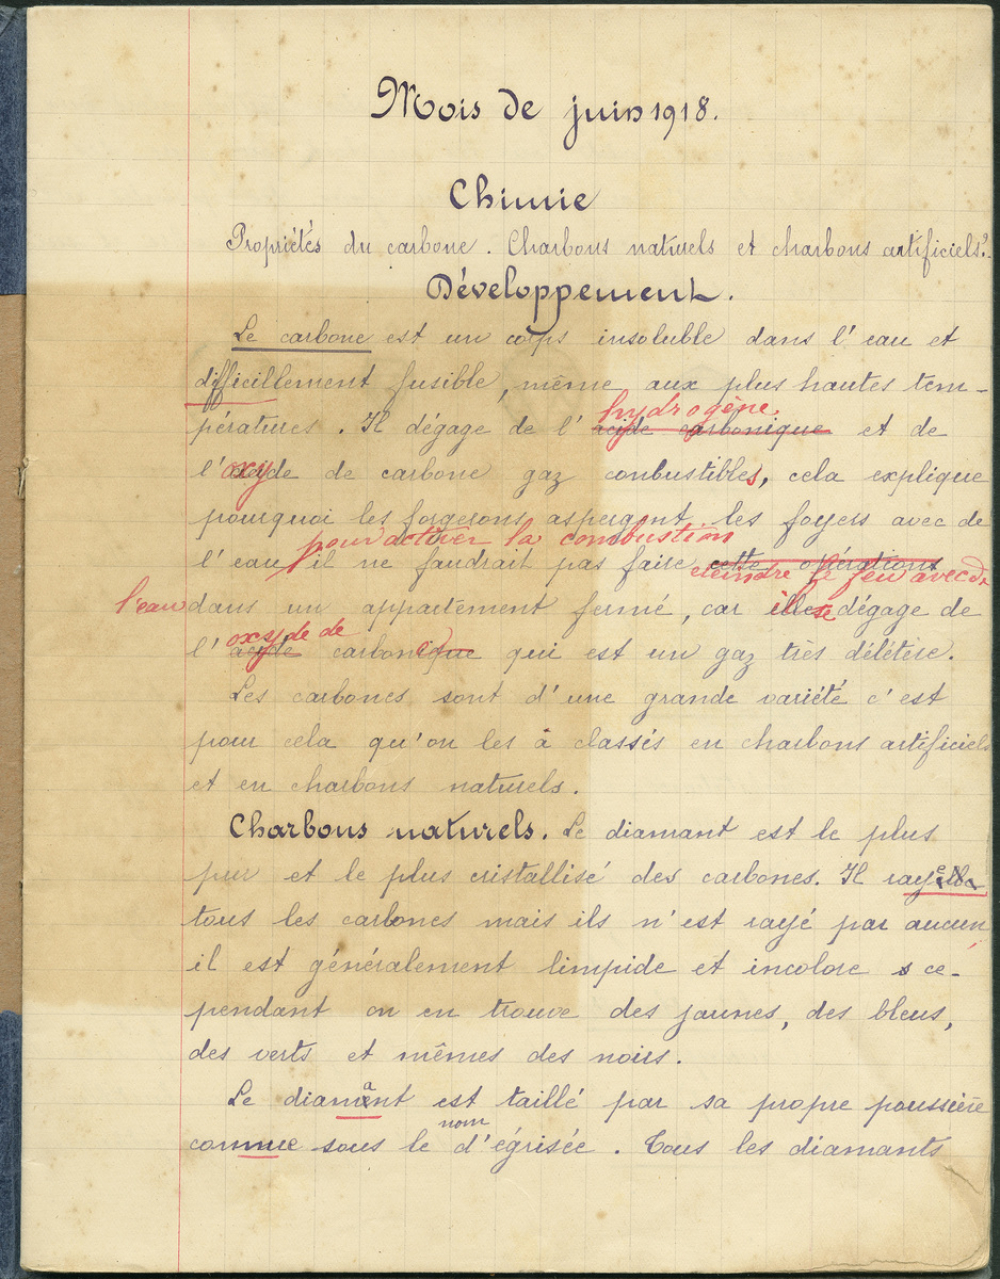 Mois de juin 1918.
Chimie
Propriétés du carbone. Charbons naturels et charbons artificiels.
Développement.
Le carbone est un corps insoluble dans l'eau et
difficillement fusible, même aux plus hautes tem-
hydrogène
pératures. Il dégage de l'acide carbonique et de
l'oxyde de carbone gaz combustibles, cela explique
pourquoi les forgerons aspergent les foyers avec de
pour activer la combustion
l'eau il ne faudrait pas faire cette opérations
éteindre le feu avec de
l'eau dans un appartement fermé, car il se dégage de
oxyde de
l'acide carbonique qui est un gaz très délétère.
Les carbones sont d'une grande variété c'est
pour cela qu'on les à classés en charbons artificiels
et en charbons naturels.
Charbons naturels. Le diamant est le plus
pur et le plus cristallisé des carbones. Il raye
tous les carbones mais ils n'est rayé par aucun
il est généralement limpide et incolore ce-
pendant on en trouve des jaunes, des bleus,
des verts et mêmes des noirs.
Le diamant est taillé par sa propre poussière
nom
comnue sous le d'égrisée. Tous les diamants